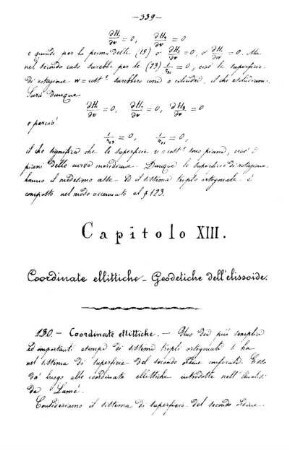 — 339 —
∂H₁/∂v = 0, ∂H₂/∂v = 0
e quindi per la prima delle (18) = 0, = 0. Ma
nel secondo caso sarebbe per le (23) = 0, cioè le superficie
di rotazione w = cost.ᵗᵉ sarebbero coni o cilindri, il che escludiamo.
Sarà dunque
∂H₁/∂v = 0, ∂H₂/∂v = 0
e perciò
= 0, = 0,
il che significa che le superficie v = cost.ᵗᵉ sono piani, cioè i
piani delle curve meridiane. Dunque le superficie di rotazione
hanno il medesimo asse ed il sistema triplo ortogonale è
composto nel modo accennato al § 123.
Capitolo XIII.
Coordinate ellittiche - Geodetiche dell'elissoide.
130. - Coordinate ellittiche. - Uno dei più semplici
ed importanti esempi di sistemi tripli ortogonali si ha
nel sistema di superficie del secondo ordine omofocali. Esso
dà luogo alle coordinate ellittiche introdotte nell'
da Lamé.
Consideriamo il sistema di superficie del secondo